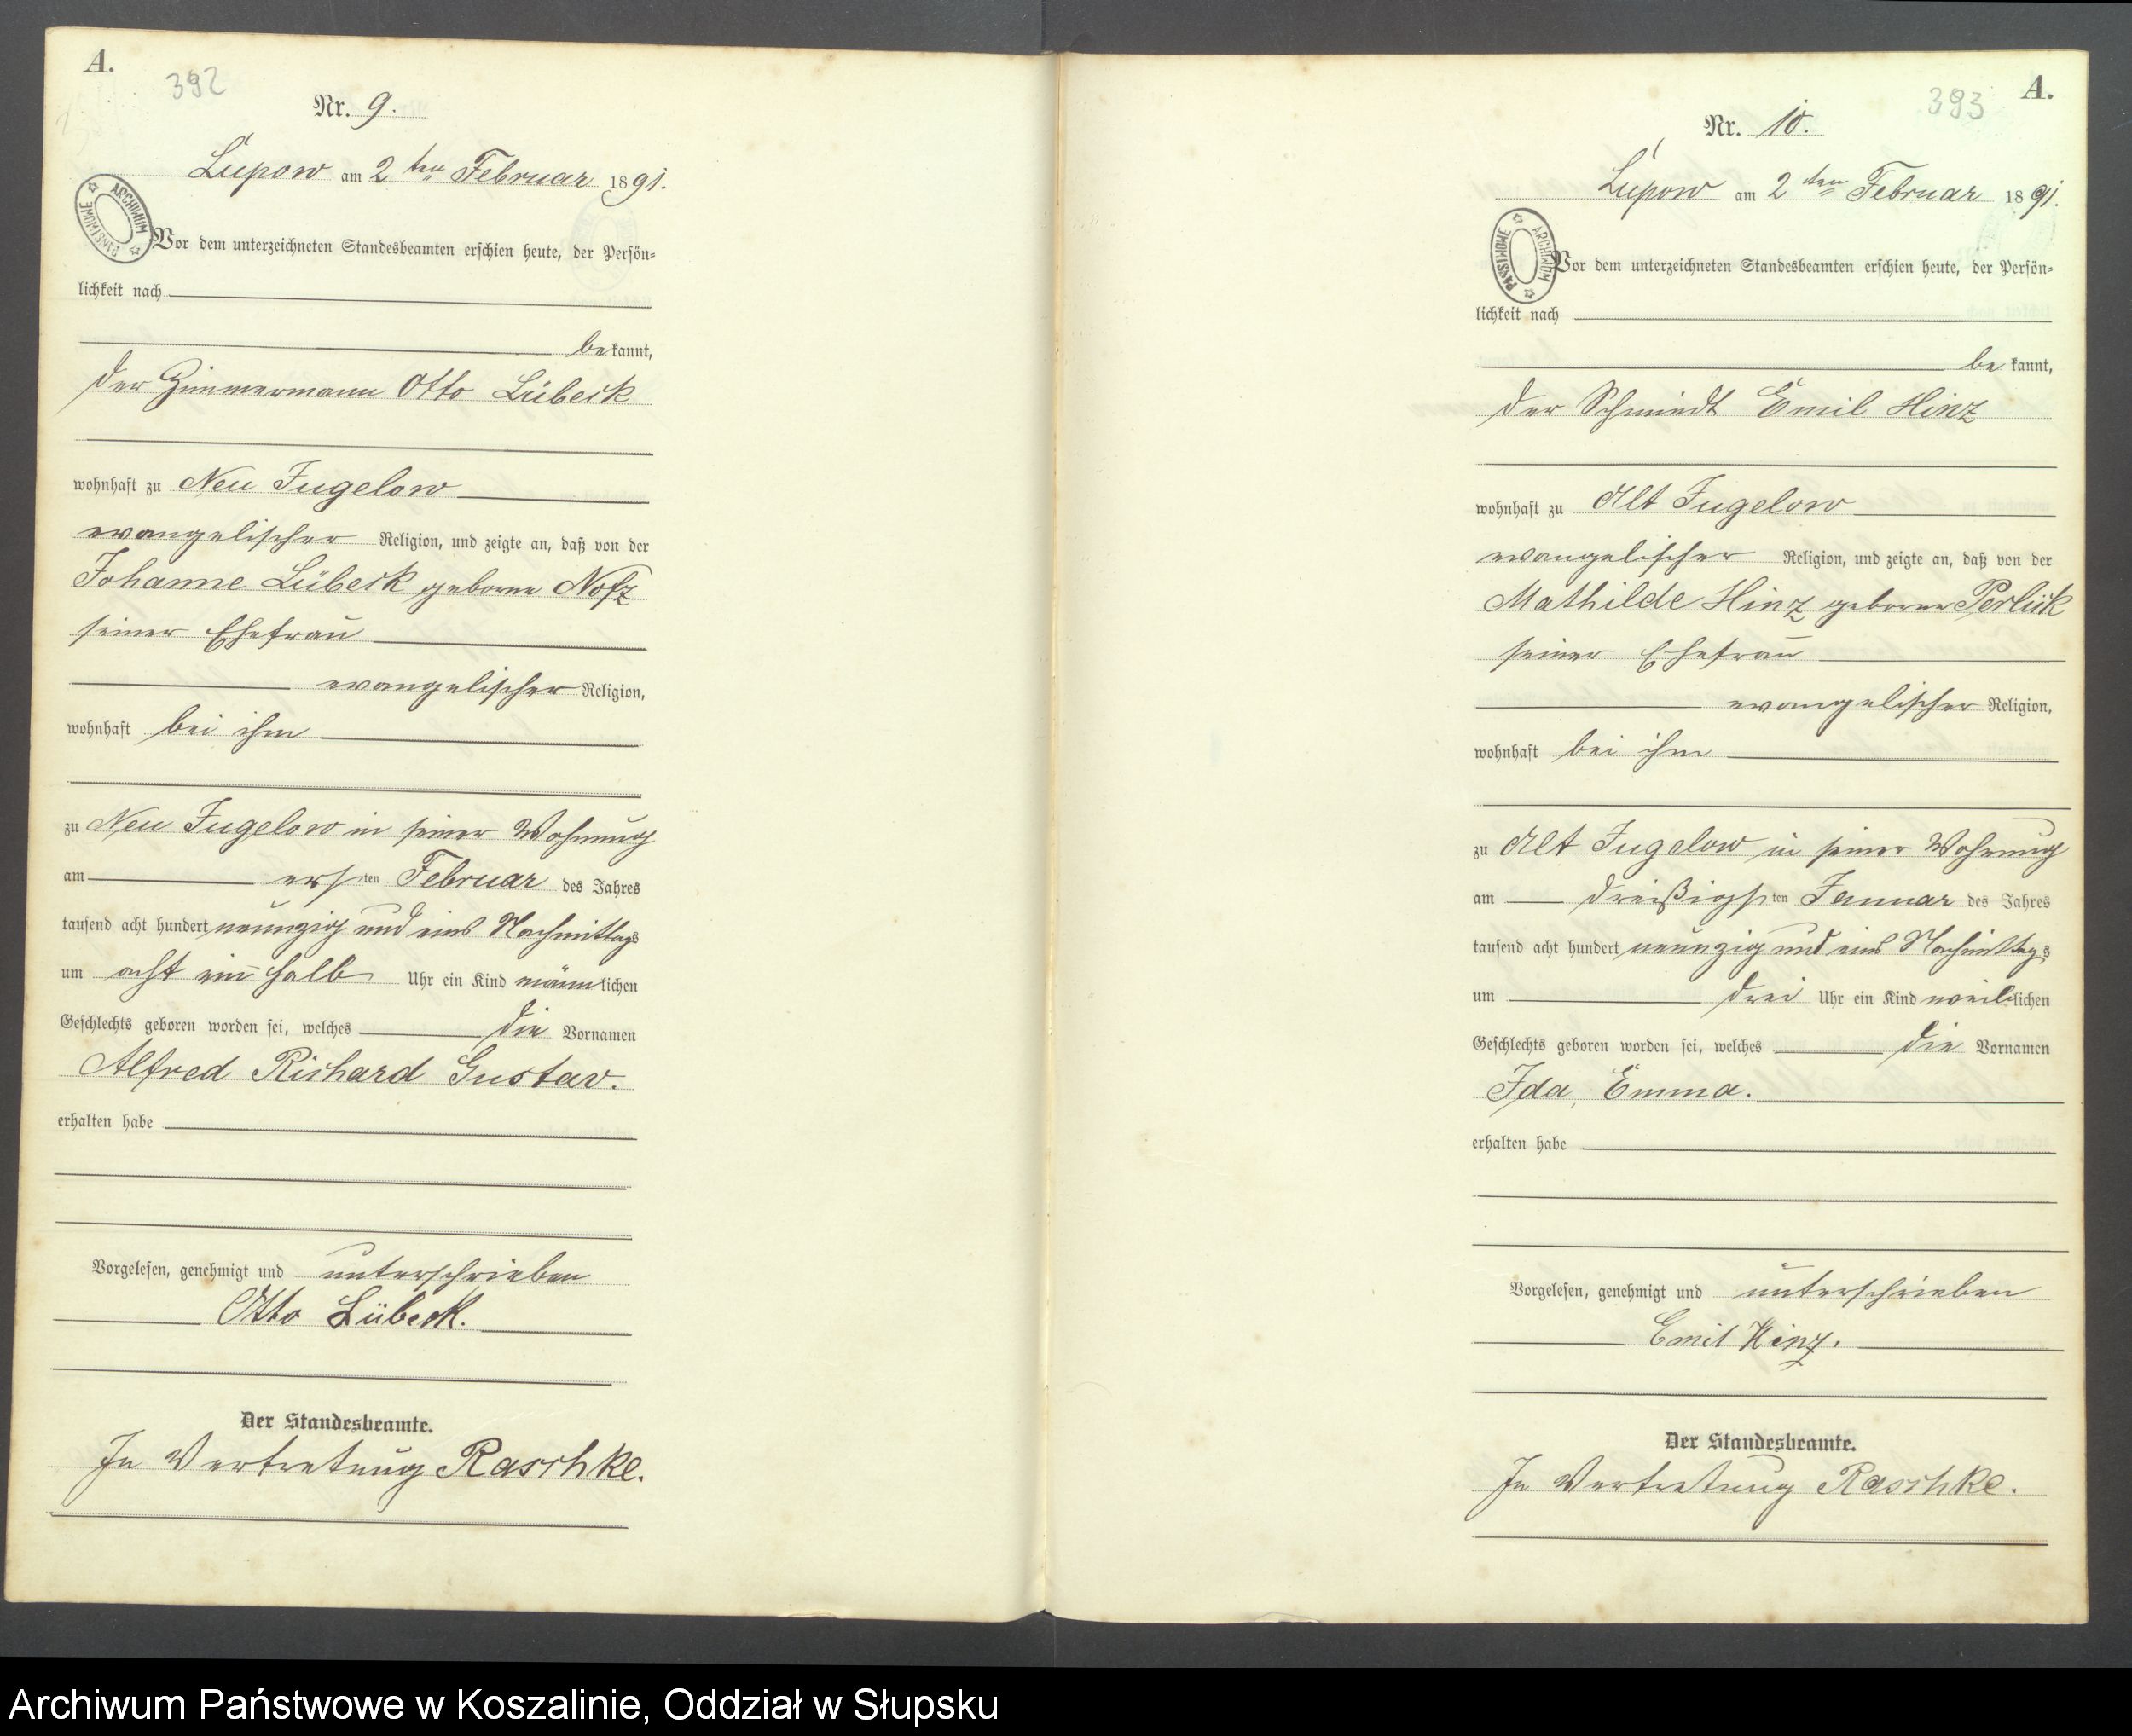 A.
392
Nr. 9.
Lupow am 2ten Februar 1891.
ARCHIWUM PAŃSTWOWE
Vor dem unterzeichneten Standesbeamten erschien heute, der Persön=
lichkeit nach
bekannt,
der Zimmermann Otto Lübeck
wohnhaft zu Neu Jugelow
evangelischer Religion, und zeigte an, daß von der
Johanne Lübeck geborne
seiner Ehefrau
evangelischer Religion,
wohnhaft bei ihm
zu Neu Jugelow in seiner Wohnung
am ersten Februar des Jahres
tausend acht hundert neunzig und eins Nachmittags
um acht ein halb Uhr ein Kind männlichen
Geschlechts geboren worden sei, welches die Vornamen
Alfred Richard Gustav.
erhalten habe
Vorgelesen, genehmigt und unterschrieben
Otto Lübeck.
Der Standesbeamte.
In Vertretung Raschke.
A.
393
Nr. 10.
Lupow am 2ten Februar 1891.
ARCHIWUM PAŃSTWOWE
Vor dem unterzeichneten Standesbeamten erschien heute, der Persön=
lichkeit nach
bekannt,
der Schmiedt Emil Hinz
wohnhaft zu Alt Jugelow
evangelischer Religion, und zeigte an, daß von der
Mathilde Hinz geborne Perlick
seiner Ehefrau
evangelischer Religion,
wohnhaft bei ihm
zu Alt Jugelow in seiner Wohnung
am dreißigsten Januar des Jahres
tausend acht hundert neunzig und eins Nachmittags
um drei Uhr ein Kind weiblichen
Geschlechts geboren worden sei, welches die Vornamen
Ida, Emma.
erhalten habe
Vorgelesen, genehmigt und unterschrieben
Emil Hinz.
Der Standesbeamte.
In Vertretung Raschke.
Archiwum Państwowe w Koszalinie, Oddział w Słupsku